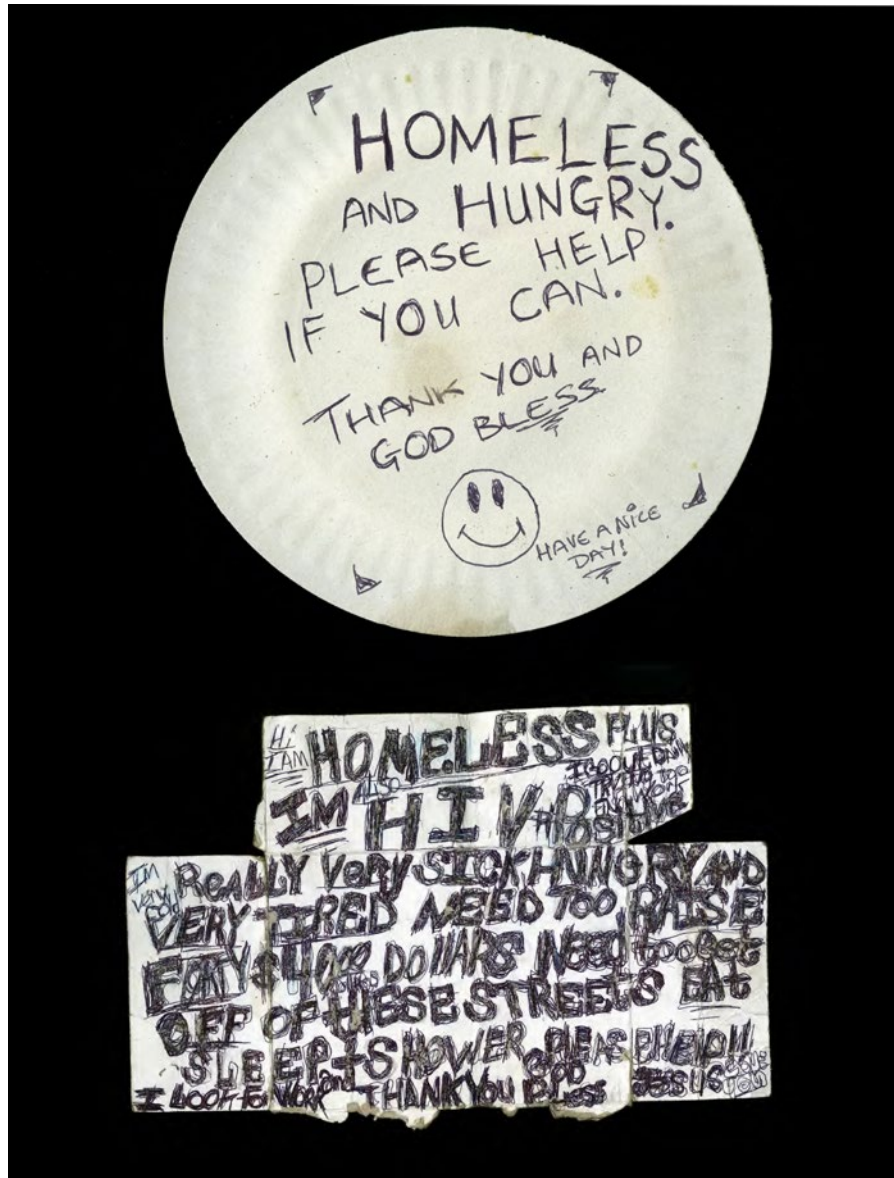 HOMELESS
AND HUNGRY.
PLEASE HELP
IF YOU CAN.
THANK YOU AND
GOD BLESS
HAVE A NICE
DAY!
Hi
I AM
HOMELESS PLUS
ALSO
IM HIV+Positive
IM
very
REALLY VERY SICK HUNGRY AND
VERY TIRED NEED TOO RAISE
FORTY $4000 DOllARS NEED too Get
OFF OF THESE STREETS EAt
SLEEP + SHOWER PLEAS
I LOOK for WORK and THANK YOU GOD BLESS JESUS